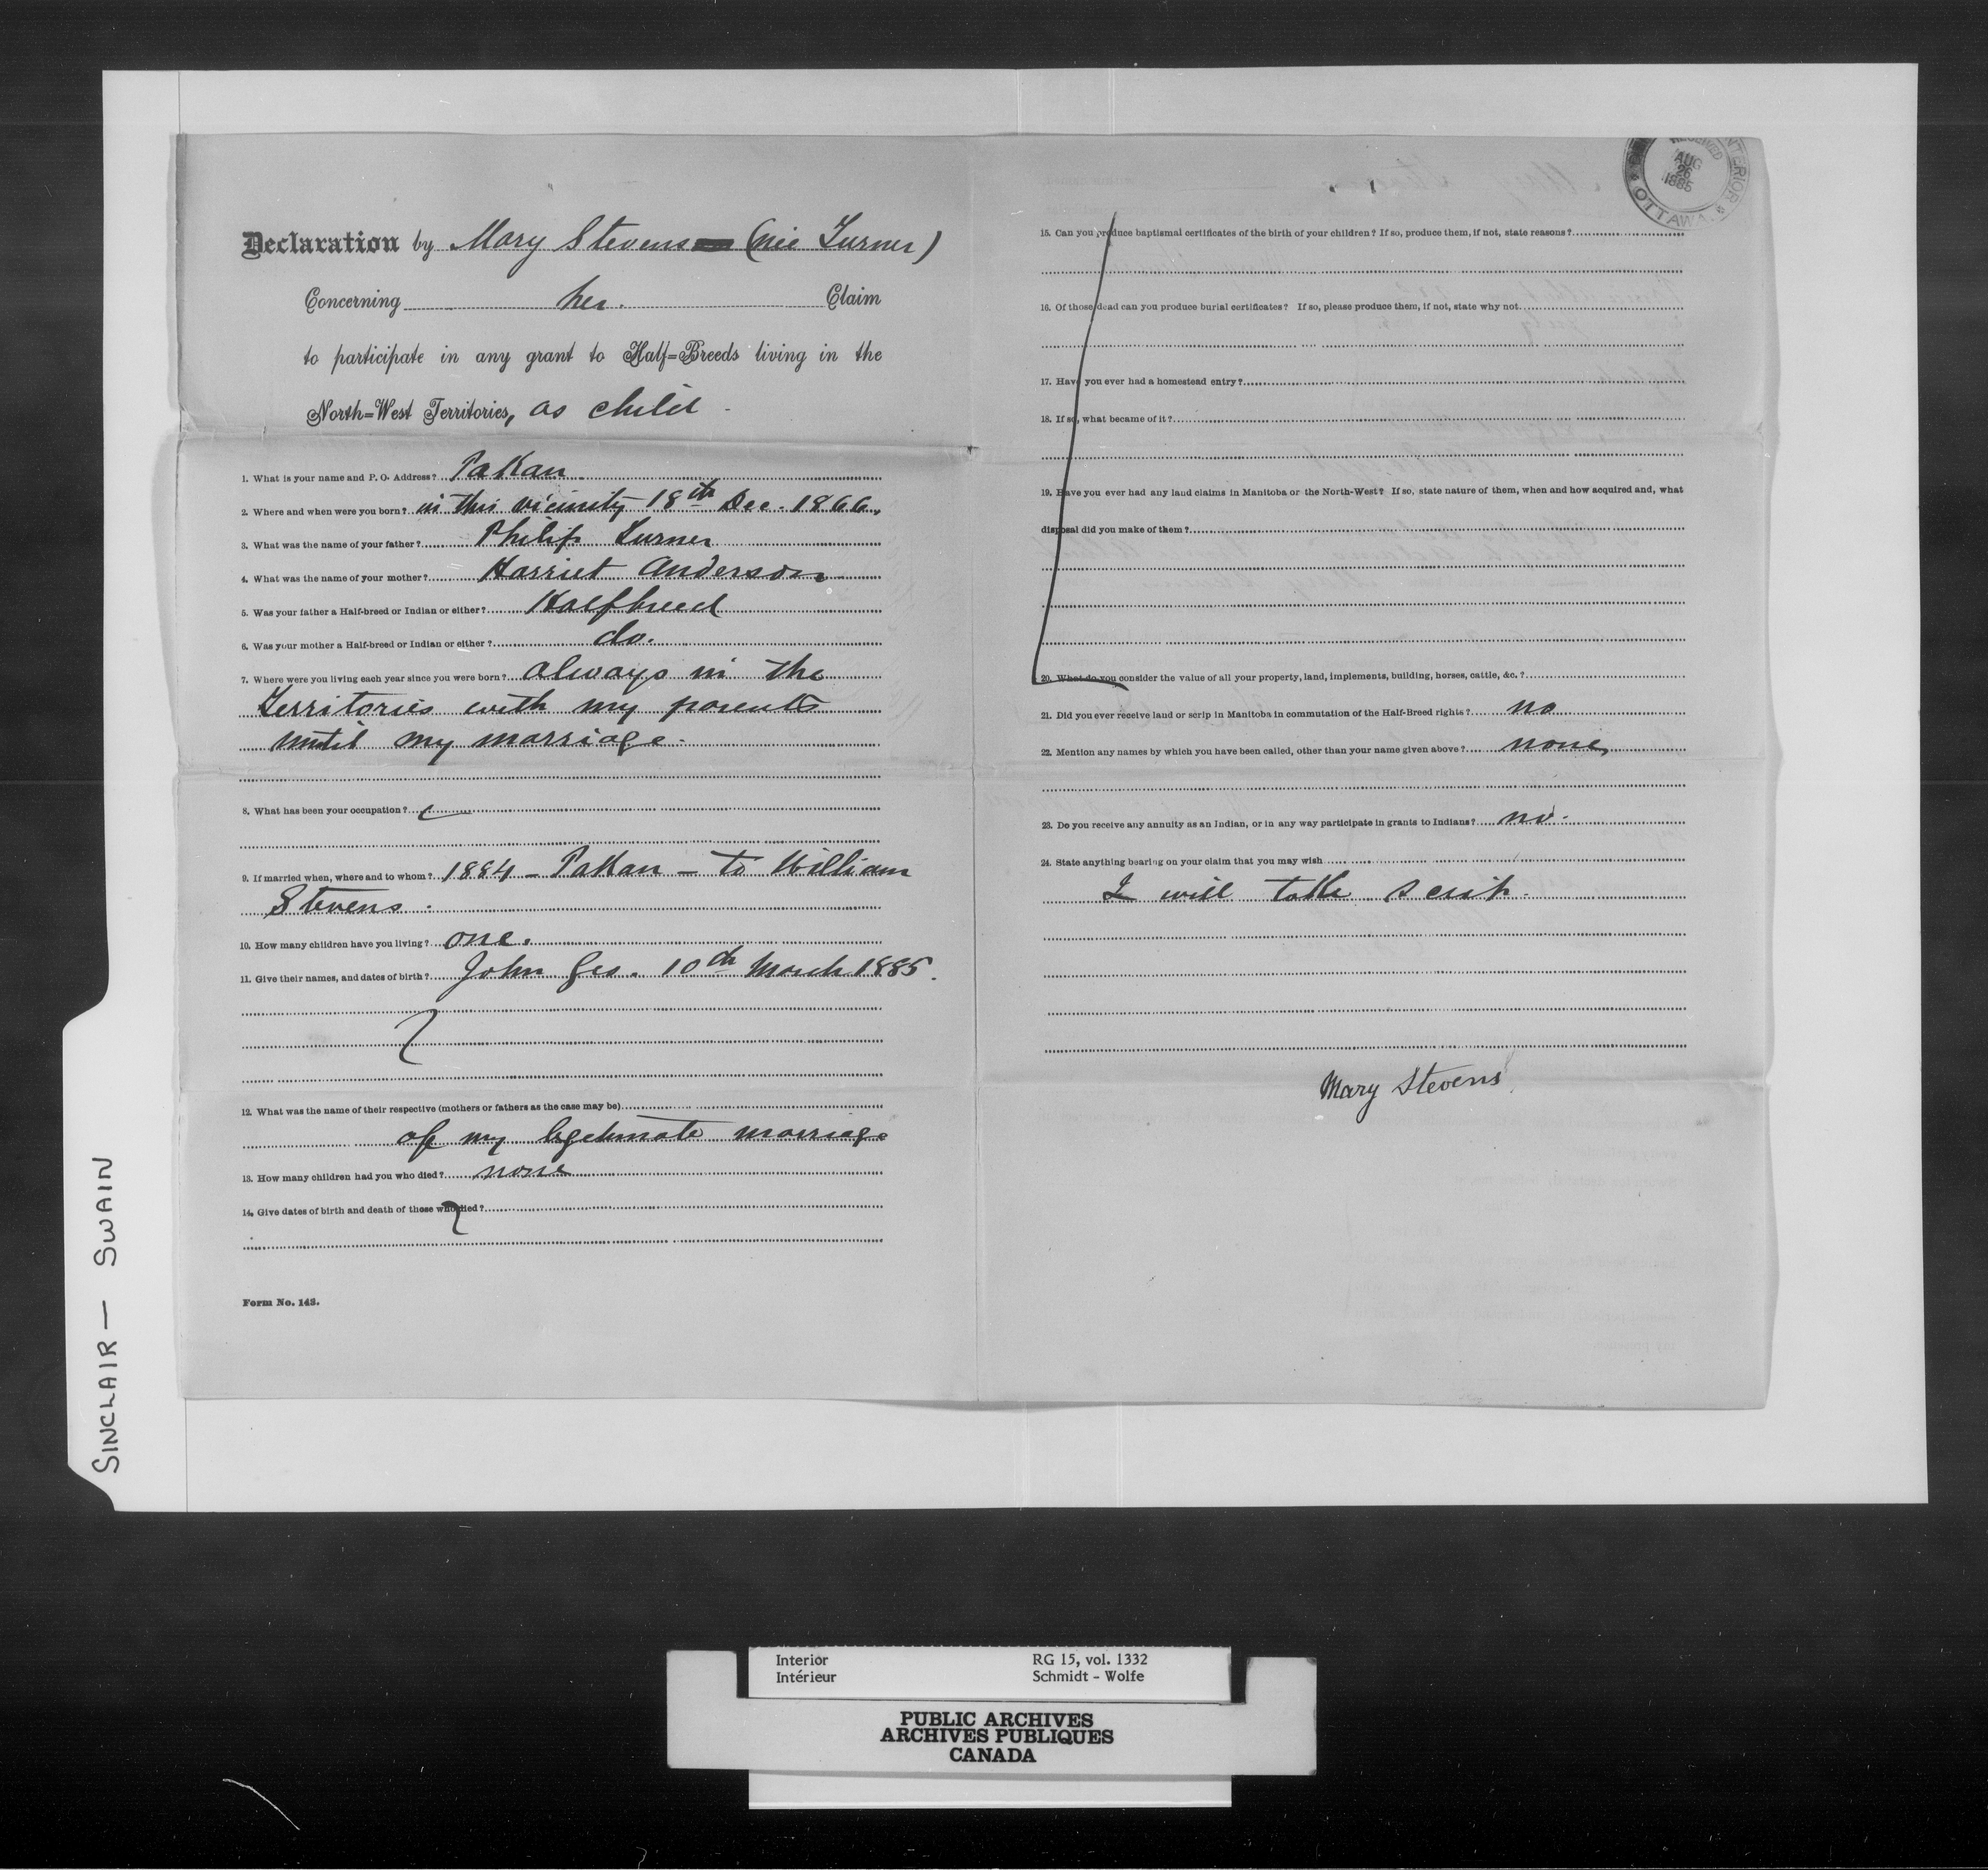 Declaration by Mary Stevens (née Turner)
Concerning her. Claim
to participate in any grant to Half=Breeds living in the
North=West Territories, as child -
1. What is your name and P. O. Address? Pakan
2. Where and when were you born? in this vicinity 18th Dec. 1866.
3. What was the name of your father? Philip Turner
4. What was the name of your mother? Harriet Anderson
5. Was your father a Half-breed or Indian or either? Halfbreed
6. Was your mother a Half-breed or Indian or either? do.
7. Where were you living each year since you were born? always in the
Territories with my parents
until my marriage.
8. What has been your occupation?
9. If married when, where and to whom? 1884 - Pakan - to William
Stevens.
10. How many children have you living? one.
11. Give their names, and dates of birth? John Geo. 10th March 1885.
12. What was the name of their respective (mothers or fathers as the case may be)
of my legitimate marriage
13. How many children had you who died? none
14. Give dates of birth and death of those who died?
Form No. 143.
RECEIVED
AUG
26
1885
INTERIOR
OTTAWA
15. Can you produce baptismal certificates of the birth of your children? If so, produce them, if not, state reasons?
16. Of those dead can you produce burial certificates? If so, please produce them, if not, state why not
17. Have you ever had a homestead entry?
18. If so, what became of it?
19. Have you ever had any land claims in Manitoba or the North-West? If so, state nature of them, when and how acquired and, what
disposal did you make of them?
20. What do you consider the value of all your property, land, implements, building, horses, cattle, &c.?
21. Did you ever receive land or scrip in Manitoba in commutation of the Half-Breed rights? no
22. Mention any names by which you have been called, other than your name given above? none
23. Do you receive any annuity as an Indian, or in any way participate in grants to Indians? no.
24. State anything bearing on your claim that you may wish
I will take scrip.
Mary Stevens
SINCLAIR — SWAIN
Interior RG 15, vol. 1332
Intérieur Schmidt - Wolfe
PUBLIC ARCHIVES
ARCHIVES PUBLIQUES
CANADA